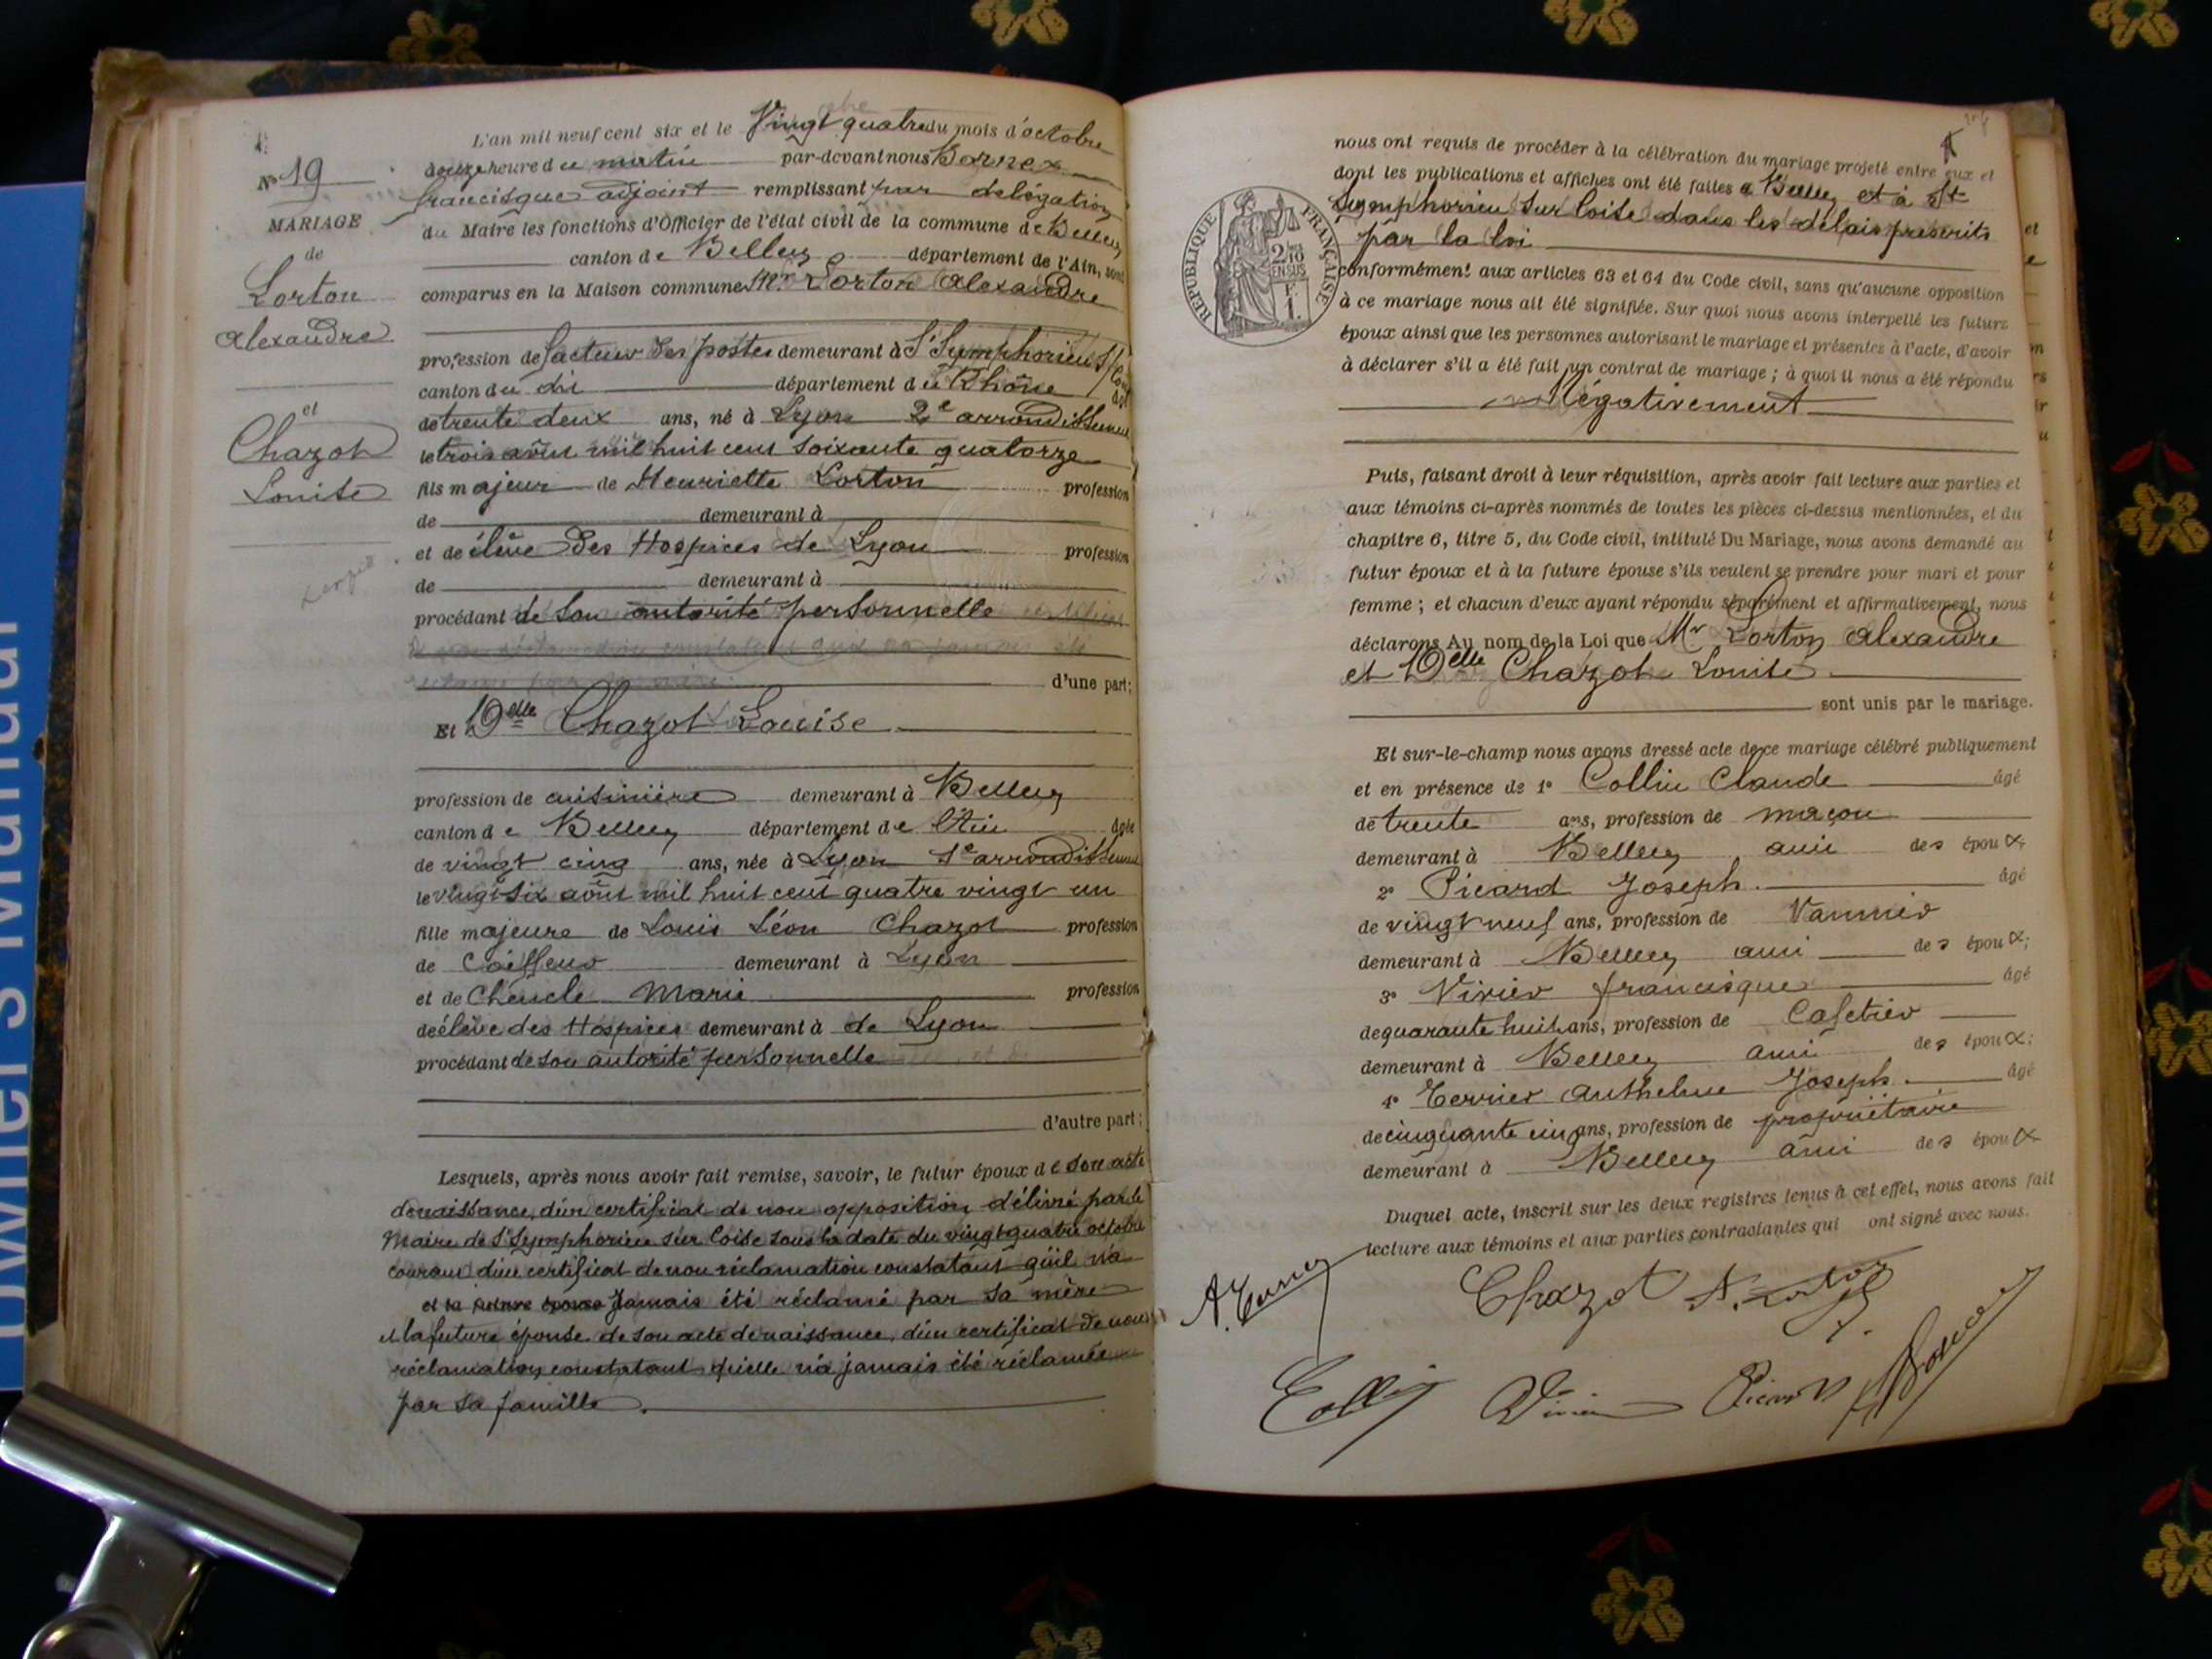 L'an mil neuf cent six et le Vingt quatre du mois d'octobre
N° 19
douze heure du matin par-devant nous Bornex
francisque adjoint remplissant par délégation
MARIAGE
du Maire les fonctions d'Officier de l'état civil de la commune de Belley
de
canton de Belley département de l'Ain, sont
Lorton
comparus en la Maison commune Mr. Lorton Alexandre
Alexandre
profession de facteur des postes demeurant à St Symphorien s/ Coise
canton du dit département du Rhône agé
et
de trente deux ans, né à Lyon 2e arrondissement
Chazot
le trois août mil huit cent soixante quatorze
Louise
fils majeur de Henriette Lorton profession
de demeurant à
et de élève des Hospices de Lyon profession
de demeurant à
procédant de son autorité personnelle
d'une part;
Et Delle Chazot Louise
profession de cuisinière demeurant à Belley
canton de Belley département de l'Ain agée
de vingt cinq ans, née à Lyon 1e arrondissement
le vingt six août mil huit cent quatre vingt un
fille majeure de Louis Léon Chazot profession
de Coiffeur demeurant à Lyon
et de Marie profession
de élève des Hospices demeurant à de Lyon
procédant de son autorité personnelle
d'autre part;
Lesquels, après nous avoir fait remise, savoir, le futur époux de son acte
de naissance, d'un certificat de non opposition délivré par le
Maire de St Symphorien sur Coise sous la date du vingt quatre octobre
courant d'un certificat de non réclamation constatant qu'il n'a
et la future épouse jamais été réclamé par sa mère
et la future épouse de son acte de naissance, d'un certificat de non
réclamation constatant qu'elle n'a jamais été réclamée
par sa famille.
nous ont requis de procéder à la célébration du mariage projeté entre eux et
dont les publications et affiches ont été faites à Belley et à St
Symphorien sur Coise dans les délais prescrits
par la loi
RÉPUBLIQUE FRANÇAISE
2/10 EN SUS
conformément aux articles 63 et 64 du Code civil, sans qu'aucune opposition
à ce mariage nous ait été signifiée. Sur quoi nous avons interpellé les futurs
époux ainsi que les personnes autorisant le mariage et présentes à l'acte, d'avoir
à déclarer s'il a été fait un contrat de mariage; à quoi il nous a été répondu
Négativement
Puis, faisant droit à leur réquisition, après avoir fait lecture aux parties et
aux témoins ci-après nommés de toutes les pièces ci-dessus mentionnées, et du
chapitre 6, titre 5, du Code civil, intitulé Du Mariage, nous avons demandé au
futur époux et à la future épouse s'ils veulent se prendre pour mari et pour
femme; et chacun d'eux ayant répondu séparément et affirmativement, nous
déclarons Au nom de la Loi que Mr Lorton Alexandre
et Delle Chazot Louise
sont unis par le mariage.
Et sur-le-champ nous avons dressé acte de ce mariage célébré publiquement
et en présence de 1° Collin Claude âgé
de trente ans, profession de maçon
demeurant à Belley ami des époux
2° Picard Joseph âgé
de vingt neuf ans, profession de Vannier
demeurant à Belley ami des époux;
3° Virier francisque âgé
de quarante huit ans, profession de Cafetier
demeurant à Belley ami des époux;
4° Terrier Anthelme Joseph âgé
de cinquante un ans, profession de propriétaire
demeurant à Belley ami des époux
Duquel acte, inscrit sur les deux registres tenus à cet effet, nous avons fait
lecture aux témoins et aux parties contractantes qui ont signé avec nous.
Chazot A. Lorton
Collin Picard